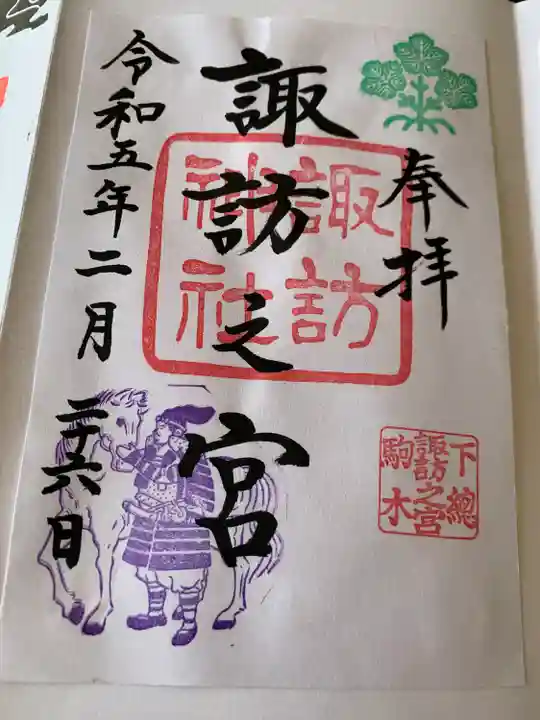 奉拝
諏訪之宮
諏訪
神社
下總
諏訪之宮
駒木
令和五年二月二十六日